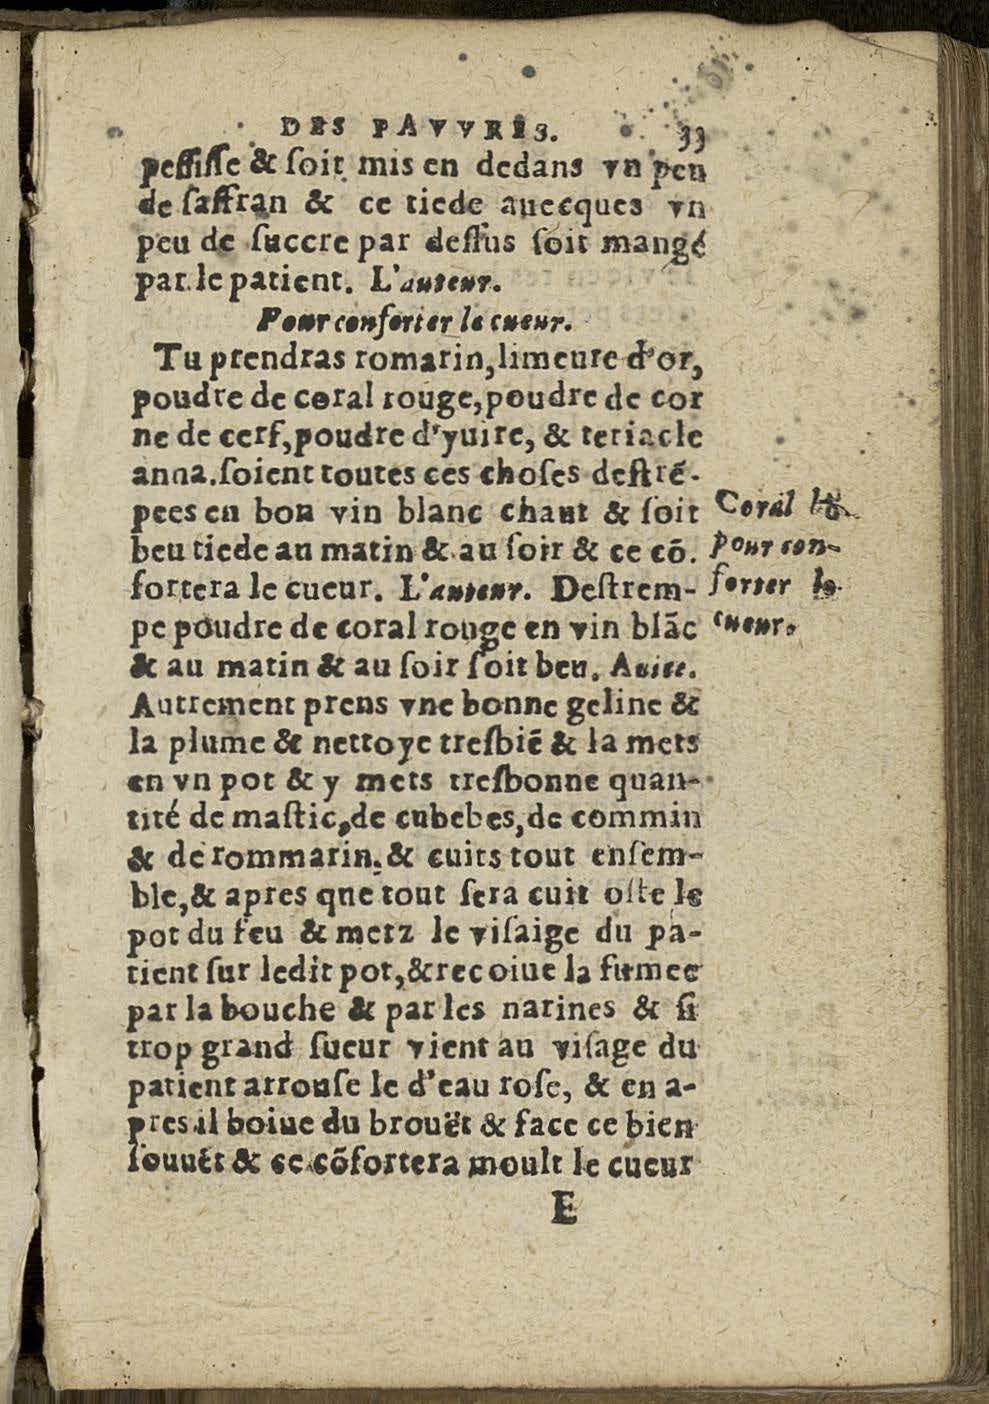 DES PAVVRES. 33
pessisse & soit mis en dedans vn peu
de saffran & ce tiede auecques vn
peu de succre par dessus soit mangé
par le patient. L'auteur.
Pour conforter le cueur.
Tu prendras romarin, limeure d'or,
poudre de coral rouge, poudre de cor
ne de cerf, poudre d'yuire, & teriacle
anna. soient toutes ces choses destré-
pees en bon vin blanc chaut & soit
beu tiede au matin & au soir & ce cõ.
fortera le cueur. L'auteur. Destrem-
pe poudre de coral rouge en vin blãc
& au matin & au soir soit beu. Auice.
Autrement prens vne bonne geline &
la plume & nettoye tresbiẽ & la mets
en vn pot & y mets tresbonne quan-
tité de mastic, de cubebes, de commin
& de rommarin, & cuits tout ensem-
ble, & apres que tout sera cuit oste le
pot du feu & metz le visaige du pa-
tient sur ledit pot, & recoiue la fumee
par la bouche & par les narines & si
trop grand sueur vient au visage du
patient arrouse le d'eau rose, & en a-
pres il boiue du brouët & face ce bien
souuẽt & ce cõfortera moult le cueur
E
Coral
pour con-
forter le
cueur.